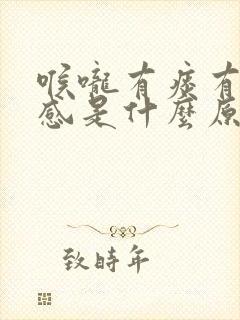 喉嚨有痰有
感是什麼原
致時年